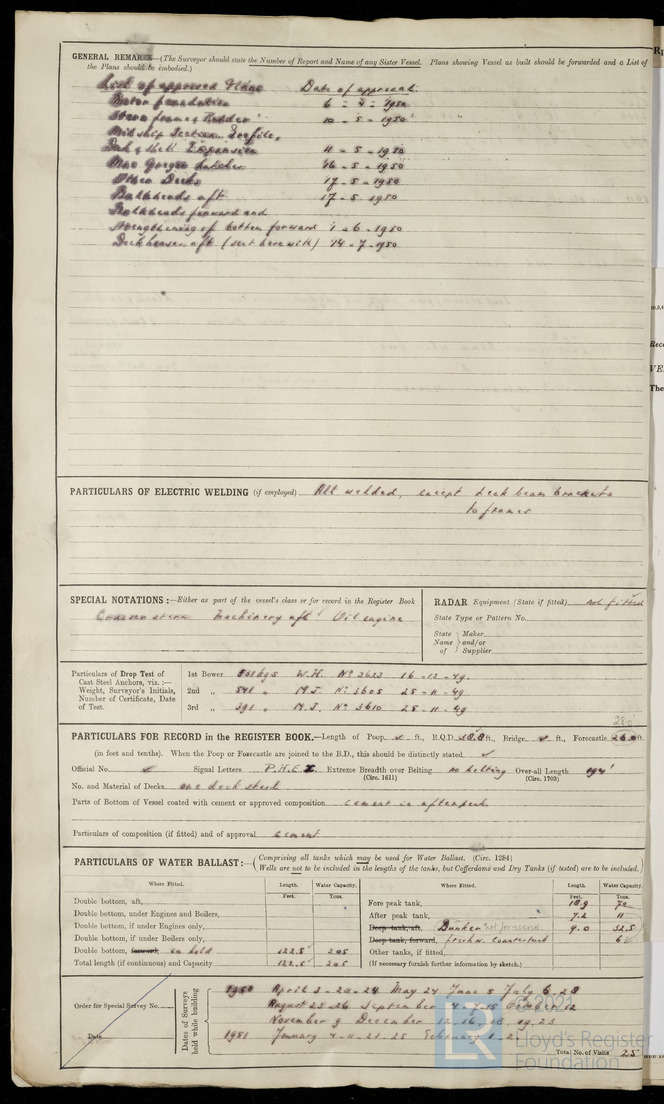 GENERAL REMARKS—(The Surveyor should state the Number of Report and Name of any Sister Vessel. Plans showing Vessel as built should be forwarded and a List of
the Plans should be embodied.)
List of approved Plans Date of approval
Motor foundation 6 - 4 - 1950
Stern frame & Rudder 10 - 5 - 1950
Midship Section, Profile,
Deck & Shell Expansion 11 - 5 - 1950
Mac Gregor hatches 16 - 5 - 1950
Other Decks 17 - 5 - 1950
Bulkheads aft 17 - 5 1950
Bulkheads forward and
strengthening of bottom forward 1 - 6 - 1950
Deckhouses aft (sent herewith) 14 - 7 - 1950
PARTICULARS OF ELECTRIC WELDING (if employed) All welded, except deck beam brackets
to frames
SPECIAL NOTATIONS:—Either as part of the vessel's class or for record in the Register Book
stern Machinery aft Oil engine
RADAR Equipment (State if fitted) not fitted
State Type or Pattern No.
State Name of Maker and/or Supplier
Particulars of Drop Test of Cast Steel Anchors, viz.:— Weight, Surveyor's Initials, Number of Certificate, Date of Test.
1st Bower W.H. No 3623 16 - 12 - 49.
2nd „ 541 „ M.J. No 3608 28 - 11 - 49
3rd „ 391 „ M.J. No 3610 28 - 11 - 49
28.0
PARTICULARS FOR RECORD in the REGISTER BOOK.—Length of Poop ft., R.Q.D. ft., Bridge ft., Forecastle ft.
(in feet and tenths). When the Poop or Forecastle are joined to the B.D., this should be distinctly stated.
Official No. Signal Letters P.H.E.X. Extreme Breadth over Belting no belting Over-all Length 194'
(Circ. 1611) (Circ. 1703)
No. and Material of Decks one deck steel
Parts of Bottom of Vessel coated with cement or approved composition cement in afterpeak
Particulars of composition (if fitted) and of approval cement
PARTICULARS OF WATER BALLAST:— (Comprising all tanks which may be used for Water Ballast. (Circ. 1284)
Wells are not to be included in the lengths of the tanks, but Cofferdams and Dry Tanks (if tested) are to be included.)
Where Fitted. Length. Water Capacity. Where Fitted. Length. Water Capacity.
Feet. Tons. Feet. Tons.
Double bottom, aft, Fore peak tank, 18.9 72
Double bottom, under Engines and Boilers, After peak tank, 7.2 11
Double bottom, if under Engines only, Deep tank, aft, Bunker 9.0 32.5
Double bottom, if under Boilers only, Deep tank, forward, freshw. 6
Double bottom, forward, in hold 122.5 205 Other tanks, if fitted,
Total length (if continuous) and Capacity 122.5 205 (If necessary furnish further information by sketch.)
Order for Special Survey No.
Date
Dates of Surveys held while building
1950 April 3 - 20 - 24 May 24 June 5 July 6 - 28
August 23 - 26 September 4 - 7 - 15 October 12
November 9 December 12 - 16 - 18 . 19 . 23
1951 January 4 - 11 - 21 - 25 February 1 - 2
Total No. of Visits 25
© 2021
LR
Lloyd's Register
Foundation